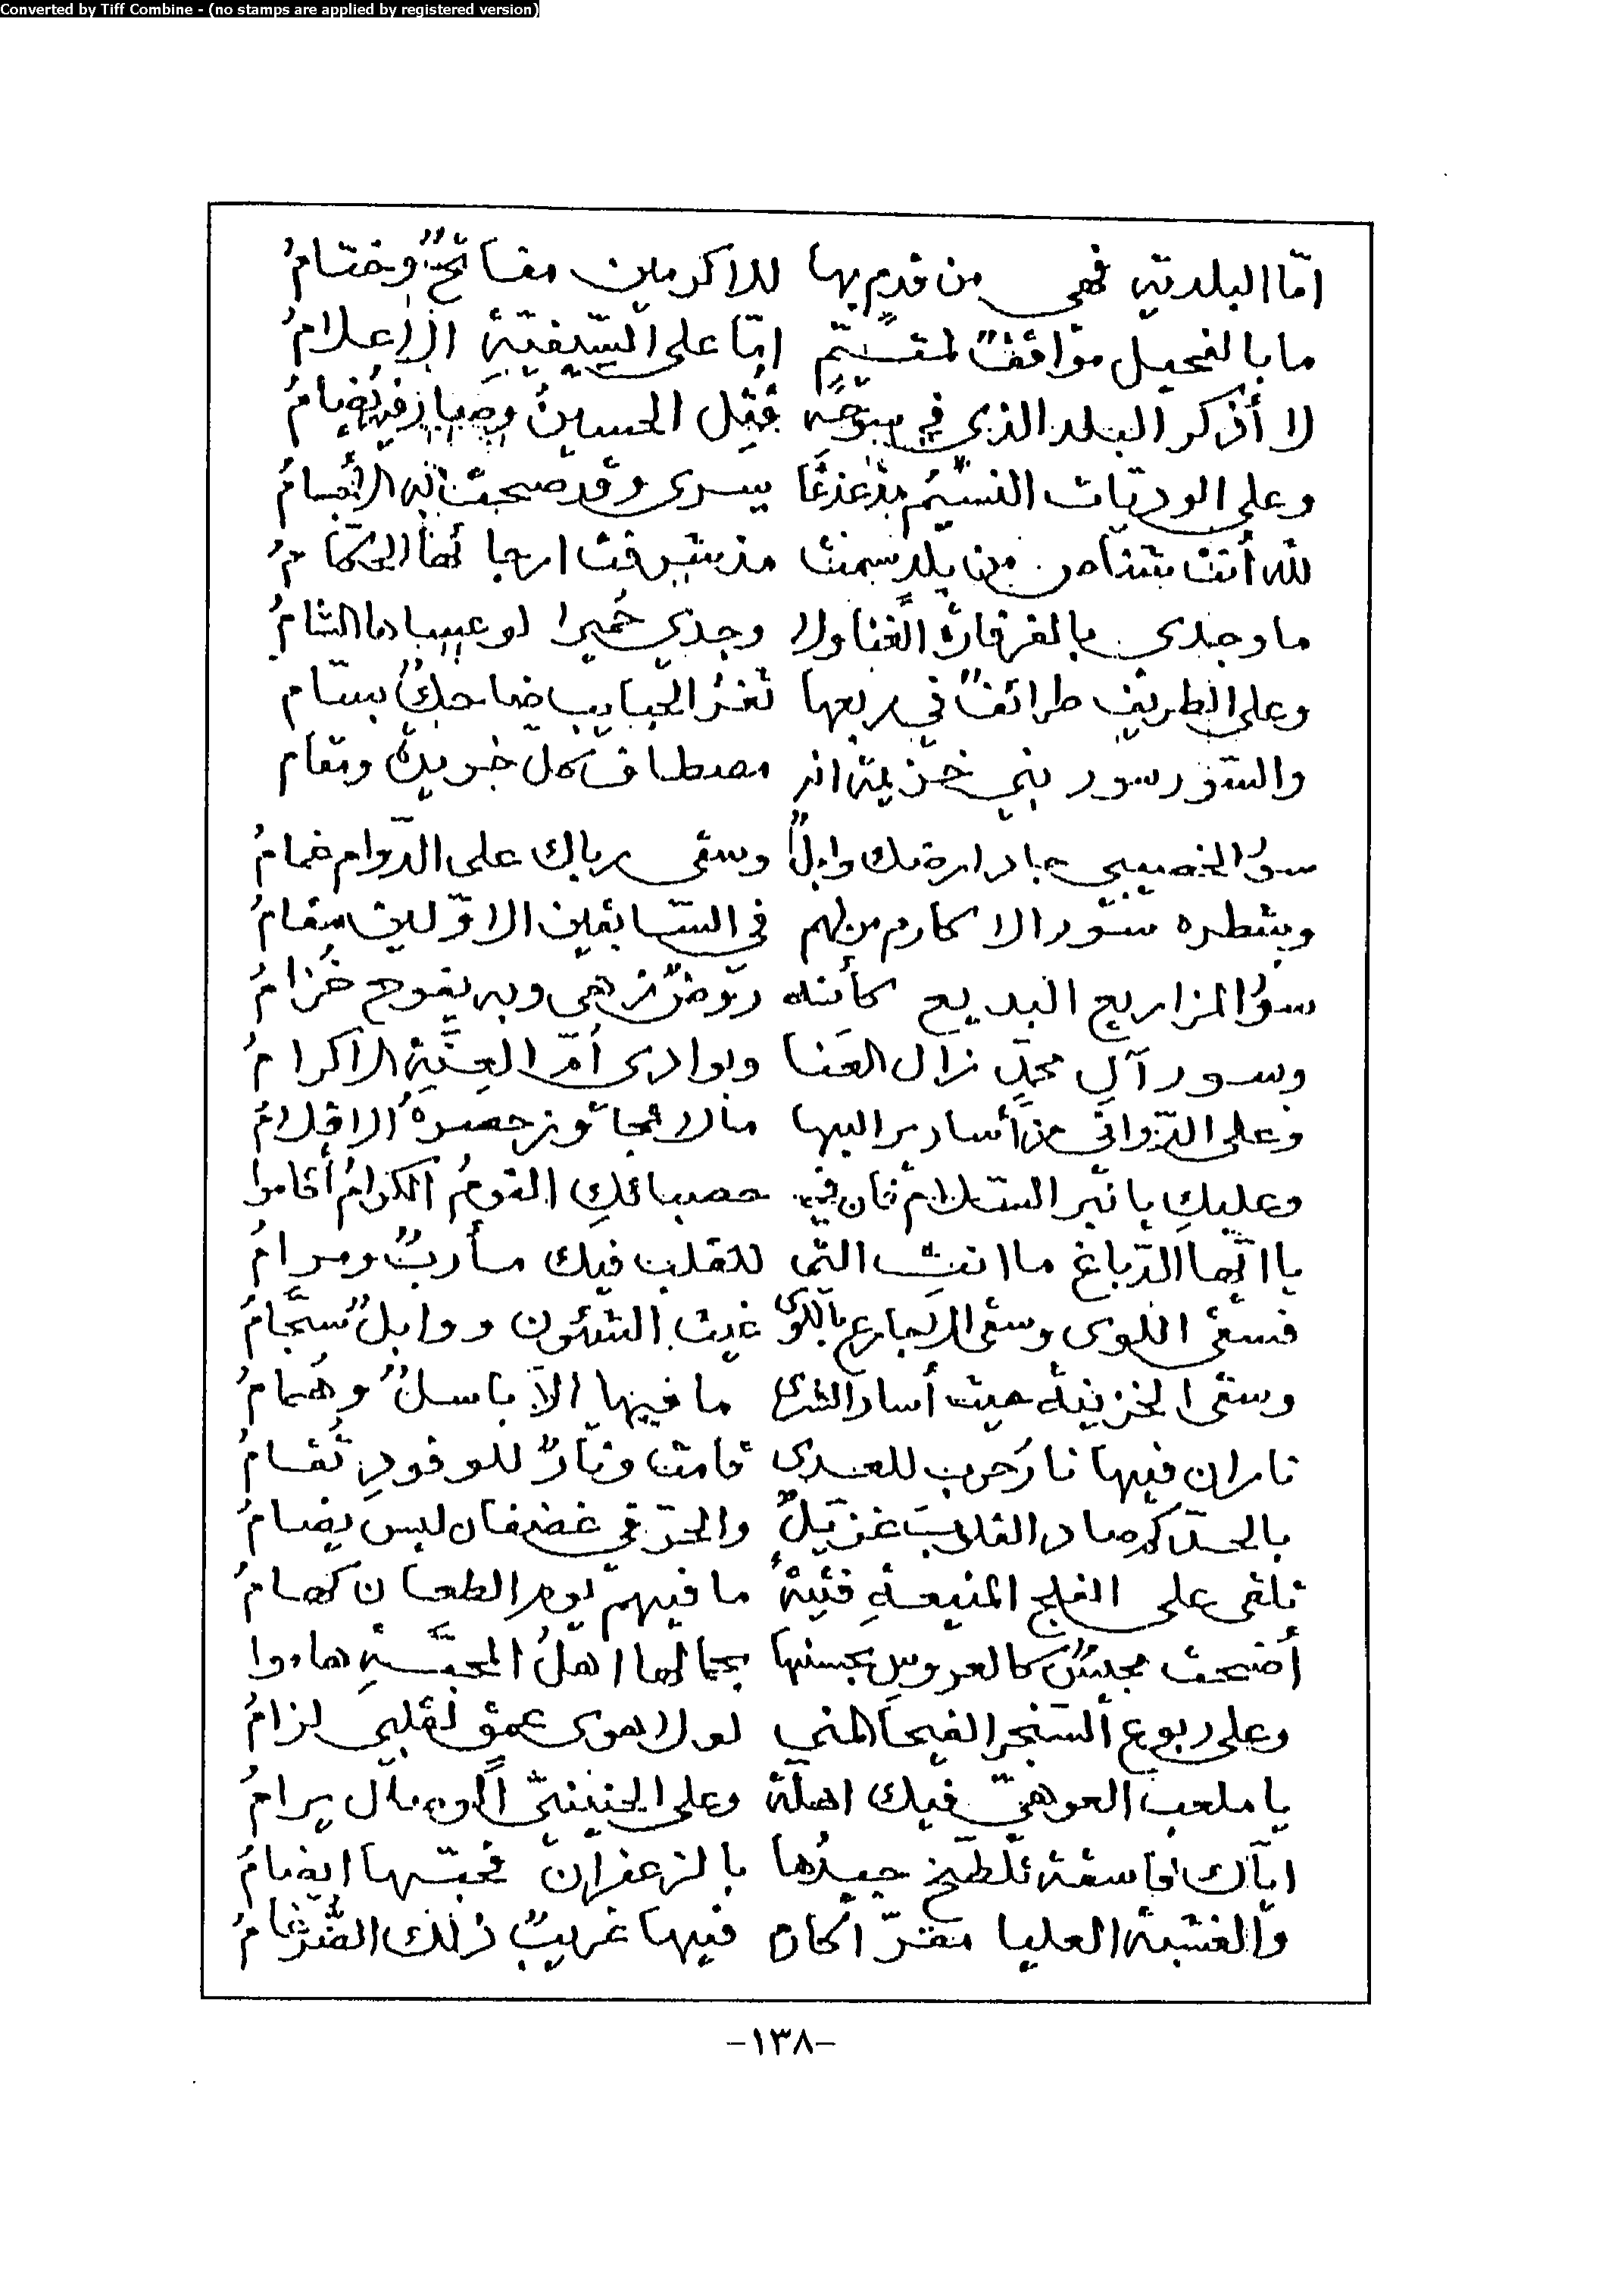 Converted by Tiff Combine - (no stamps are applied by registered version)
امّا البلدية فهي من قدم بها للاكرمين مفاتحٌ وختامُ
ما بالفحيل موّاقفٌ لمتيّمٍ امّا على السّيفيّةِ الاعلامُ
لا أذكر البلد الذي في سوحه قُتِل الحسينُ
وعلى الوديات النسيمُ مذعذعًا يسرى وقد صحبت به الأنسامُ
لله أنتَ من بلدٍ سمت مذ شرفت ارجا
ما وجدى بالفرفارة الغنا ولا وجدي حُميرا لو عيبها الشامُ
وعلى الطريف طرائفٌ في ربعها ثغرُ الحبايب ضاحكٌ بسّام
والسّور سور بني خزيمة انه مصطاف كل خريدة ومقام
سورُ الخصيبي جادارة وابلٌ وسقى رباك على الدّوام غمامُ
وبشطره سور الاكارم من لهم في السّابقين الاوّلين مقامُ
سورُ المزاريع البديع كأنه روضٌ زهى وبه يفوح خُزامُ
وسور آلِ محمدٍ نزال العَنا وبوادى أمّ الاكرامُ
وعلى الزّواقي من أسارير البها مالا تجاوز حصره الاقلامُ
وعليكِ يا نبر السّلام فان في حصبائكِ القومُ الكرامُ أقاموا
يا ايّها الدّباغ ما انتِ التي للقلب فيك مأربٌ ومرامُ
فسقى اللوى وسقى الاجارع باللوى غيث الشئون ووابلٌ سجّامُ
وسقى الخزينة حيث أساد الشرى ما فيها الاّ باسلٌ وهُمامُ
ناران فيها نارُ حرب للعدى قامت ونارٌ للوفودِ تُقامُ
بالحدّ كم صاد القلوبَ غزيّلٌ والحدّ في غضفان ليس يضامُ
تلقى على الفلج المنيعةِ فئيةً ما فيهمُ يوم الطعان كهامُ
أضحت مجيسُ كالعروس بحسنها بجمالها اهلُ المحبّةِ هاموا
وعلى ربوع السّنجر الفيحا المنى لولا هوى عمق لقلبي لزامُ
يا ملعب العوهيّ فيك اهلّة وعلى الخنينيّ يرامُ
ايّاك فاسقة تلطّخ جيدُها بالزعفران فحبّها ايضامُ
والغشبة العليا مقرّا كان فيها غريبٌ ذلك الضّرغامُ
-١٣٨-